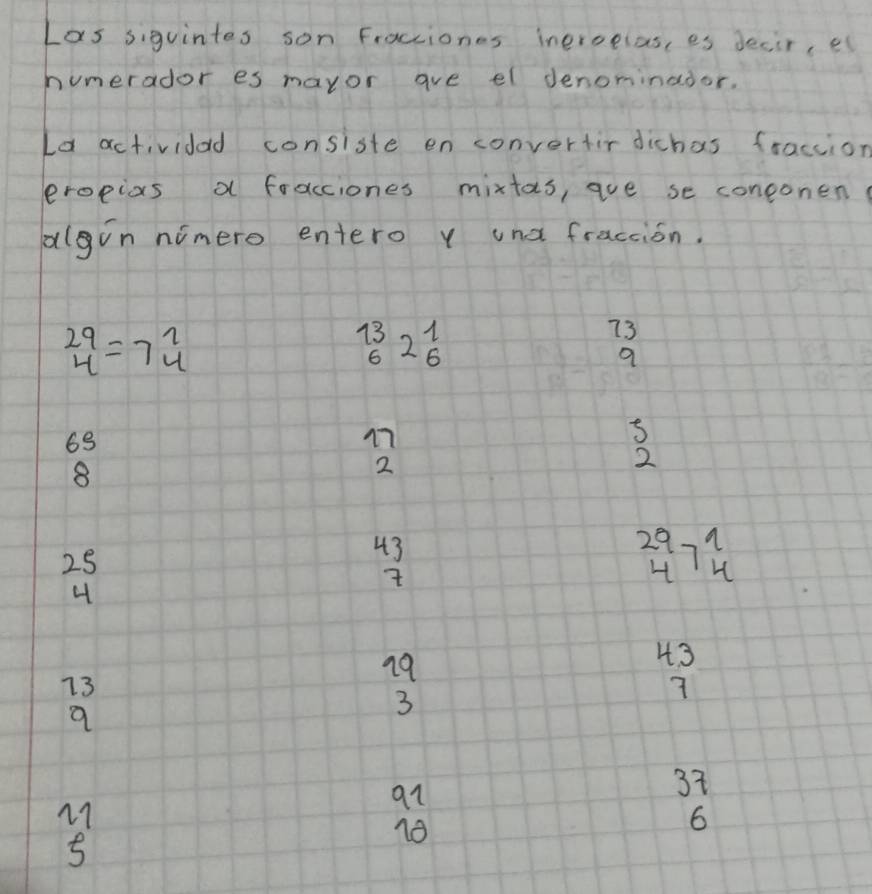 Las siguintes son Fracciones inpropias, es decir, el
numerador es mayor que el denominador.
La actividad consiste en convertir dichas fraccion
propias a fracciones mixtas, que se conponen
algún número entero y una fracción.
29/4 = 7 1/4 13/6 2 1/6 73/9
65/8 17/2 5/2
25/4 43/7 29/4 7 1/4
73/9 19/3 43/7
11/5 91/10 37/6